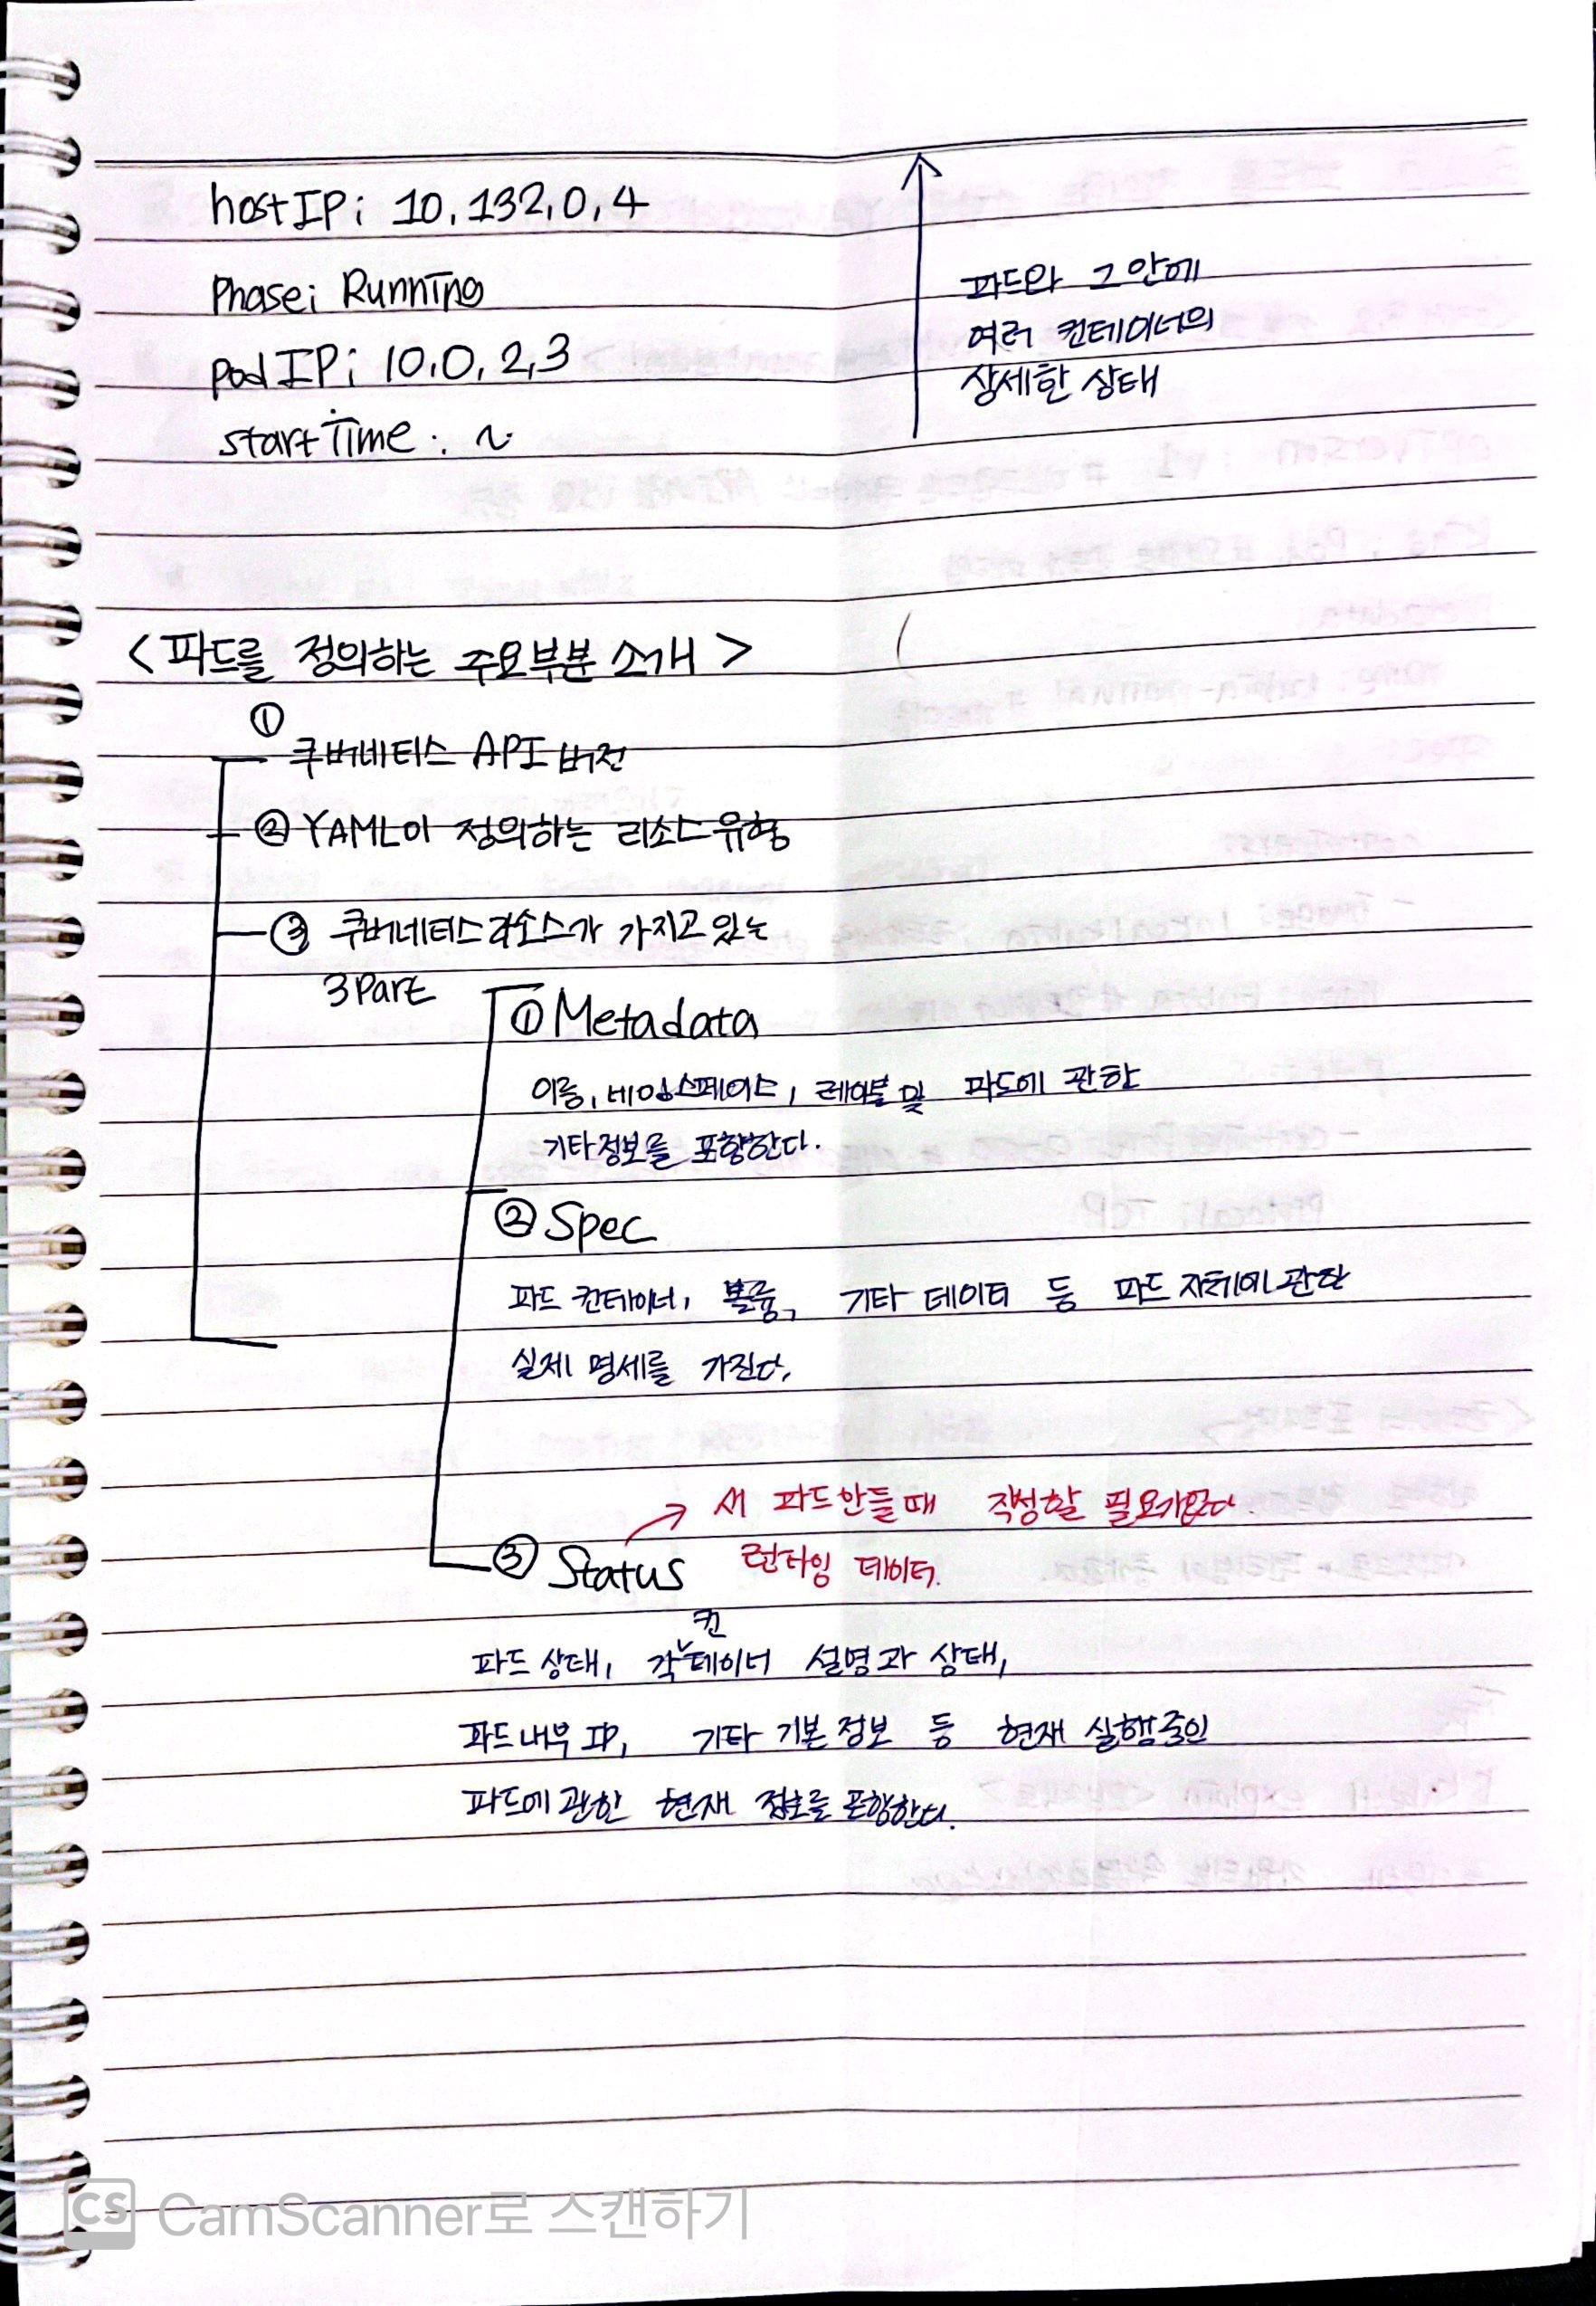 hostIP: 10.132.0.4
Phase: Running
podIP: 10.0.2.3
startTime: ~
파드와 그 안에
여러 컨테이너의
상세한 상태
<파드를 정의하는 주요부분 소개>
① 쿠버네티스 API 버전
② YAML이 정의하는 리소스 유형
③ 쿠버네티스 리소스가 가지고 있는
3Part
① Metadata
이름, 네임스페이스, 레이블 및 파드에 관한
기타정보를 포함한다.
② Spec
파드 컨테이너, 볼륨, 기타 데이터 등 파드 자체에 관한
실제 명세를 가진다.
새 파드 만들 때 작성할 필요가 없다.
③ Status 런타임 데이터.
파드 상태, 각 컨테이너 설명과 상태,
파드 내부 IP, 기타 기본 정보 등 현재 실행중인
파드에 관한 현재 정보를 포함한다.
CS CamScanner로 스캔하기